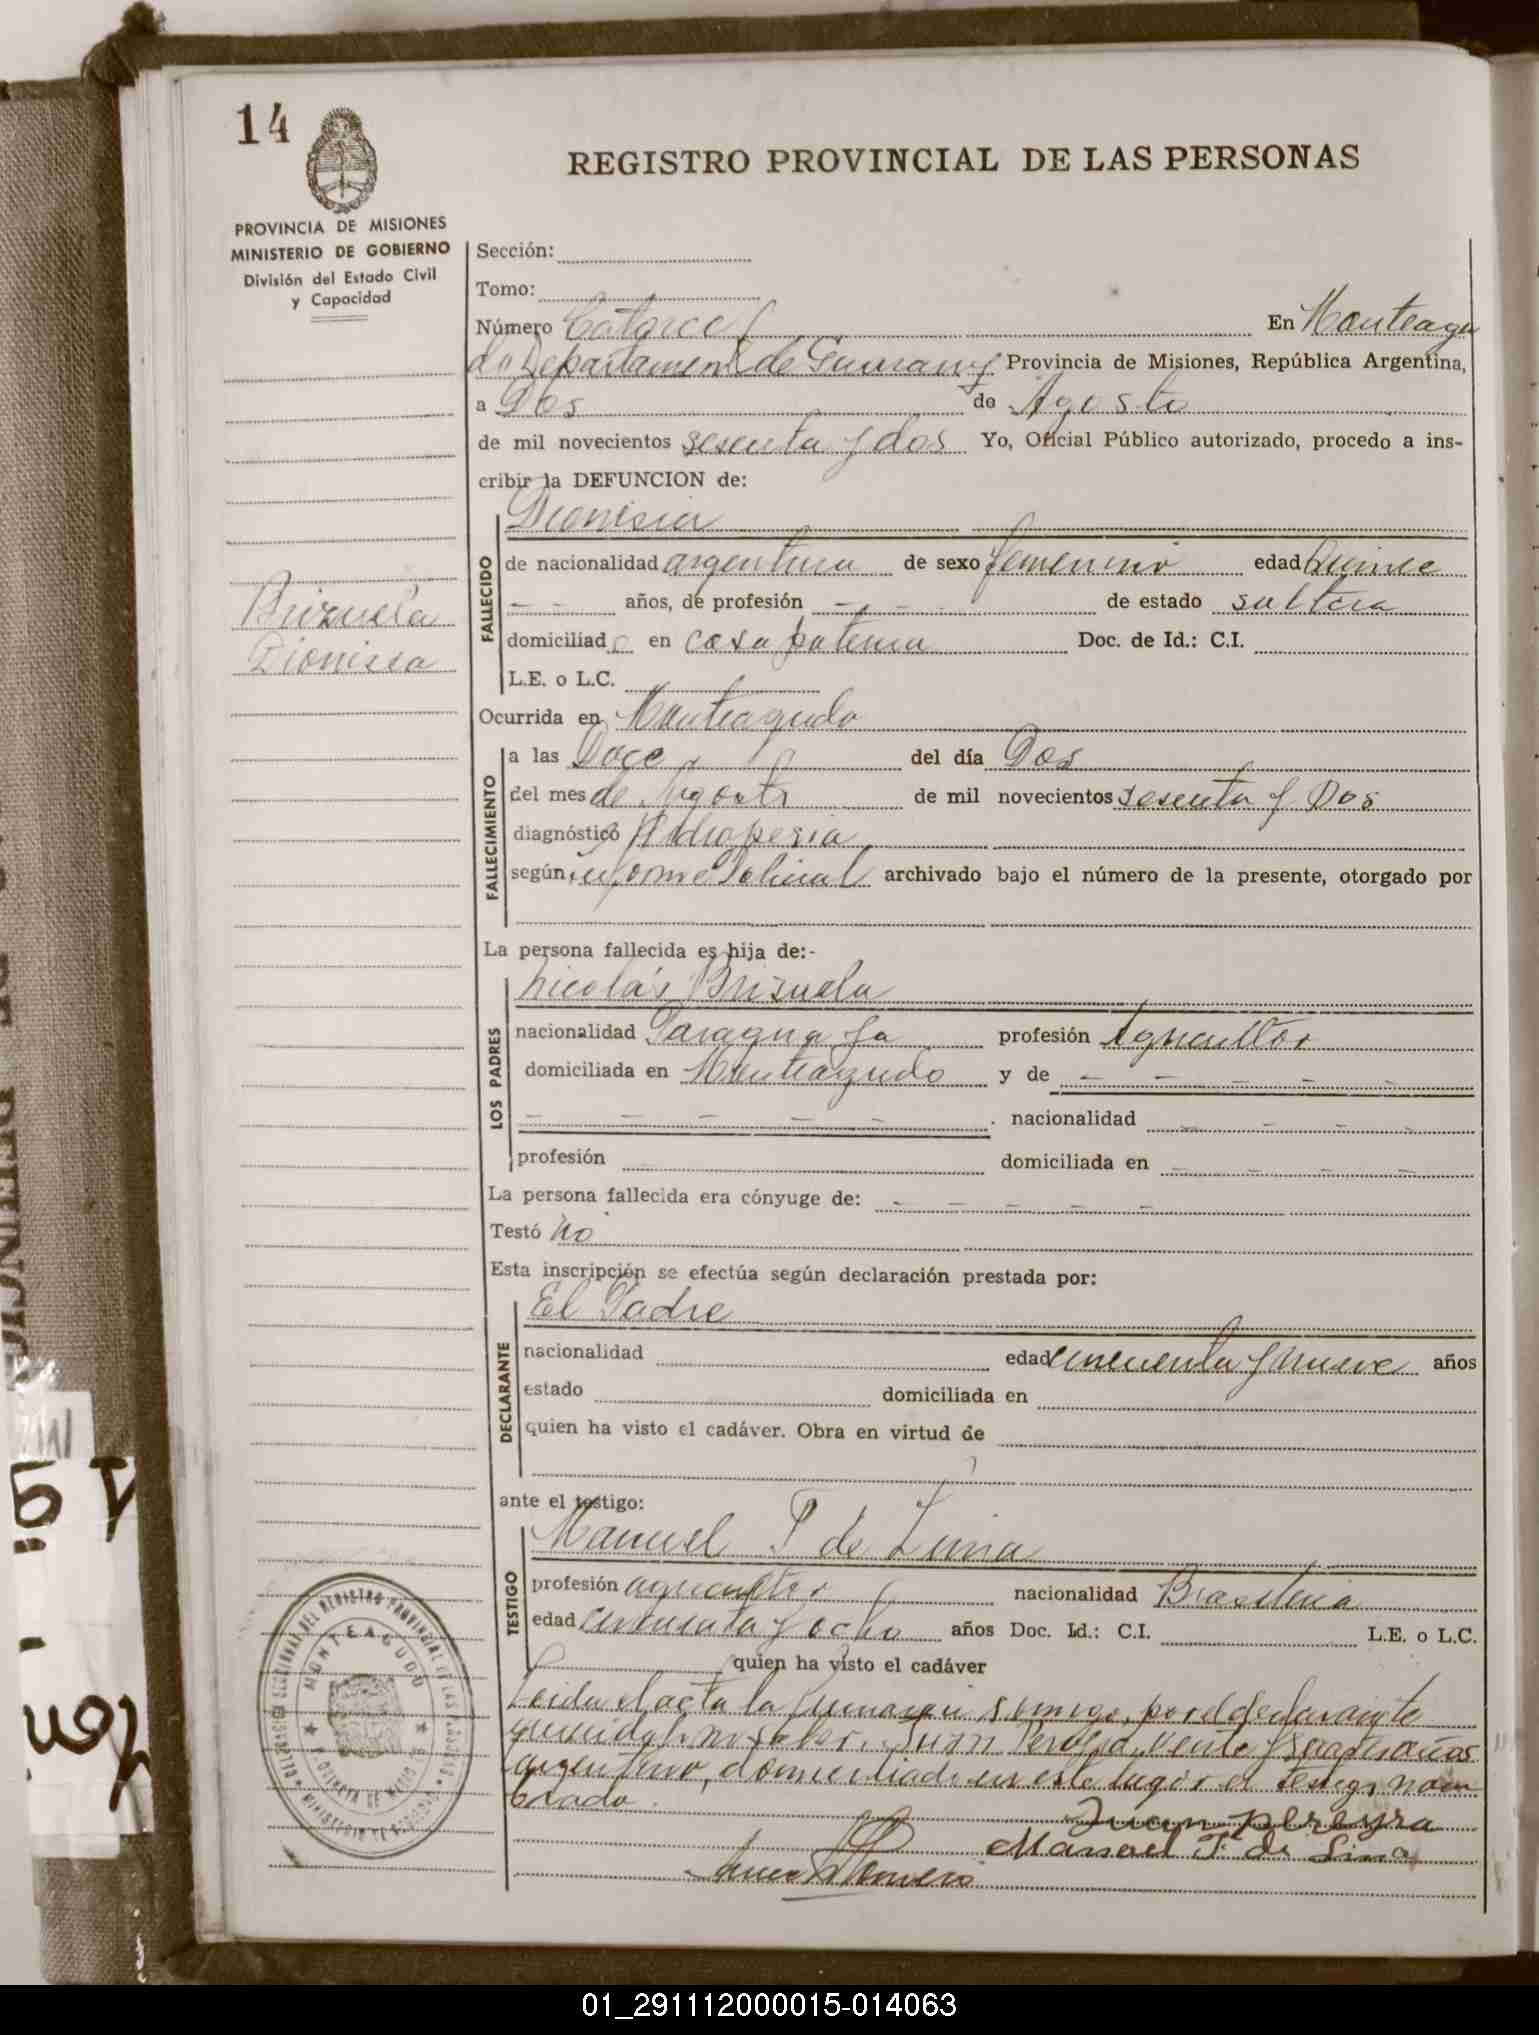 14
REGISTRO PROVINCIAL DE LAS PERSONAS
PROVINCIA DE MISIONES
MINISTERIO DE GOBIERNO
División del Estado Civil
y Capacidad
Sección:
Tomo:
Número Catorce En Monteagu
do Departamento de Guarany Provincia de Misiones, República Argentina,
a Dos de Agosto
de mil novecientos sesenta y dos Yo, Oficial Público autorizado, procedo a ins-
cribir la DEFUNCION de:
Brizuela
Dionisia
Dionisia
FALLECIDO
de nacionalidad argentina de sexo femenino edad Quince
- - años, de profesión - - de estado soltera
domiciliad a en casa paterna Doc. de Id.: C.I.
L.E. o L.C.
Ocurrida en Monteagudo
FALLECIMIENTO
a las Doce del día Dos
del mes de Agosto de mil novecientos sesenta y Dos
diagnóstico Hidropesia
según informe Policial archivado bajo el número de la presente, otorgado por
La persona fallecida es hija de:-
LOS PADRES
Nicolás Brizuela
nacionalidad Paraguaya profesión Agricultor
domiciliada en Monteagudo y de - - - - -
- - - - - . nacionalidad - - - -
profesión domiciliada en - - - -
La persona fallecida era cónyuge de: - - - -
Testó no
Esta inscripción se efectúa según declaración prestada por:
DECLARANTE
El Padre
nacionalidad edad cincuenta y nueve años
estado domiciliada en
quien ha visto el cadáver. Obra en virtud de
ante el testigo:
TESTIGO
Manuel F de Lima
profesión agricultor nacionalidad Brasilena
edad cincuenta y ocho años Doc. Id.: C.I. L.E. o L.C.
quien ha visto el cadáver
Leida el acta la firman conmigo, por el declarante
que no saber Juan Pereyra, veinte y años
argentino, domiciliado en este lugar el testigo nom
brado.
Juan pereyra
Manoel F. de Lima
MONTEAGUDO
01_291112000015-014063